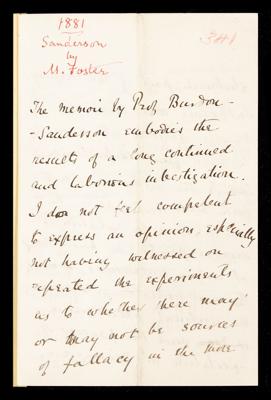 1881
Sanderson
by
M. Foster
341
The memoir by Prof. Burdon-
-Sanderson embodies the
results of a long continued
and laborious investigation.
I do not feel competent
to express an opinion, especially
not having witnessed or
repeated the experiments
as to whether there may
or may not be sources
of fallacy in the more